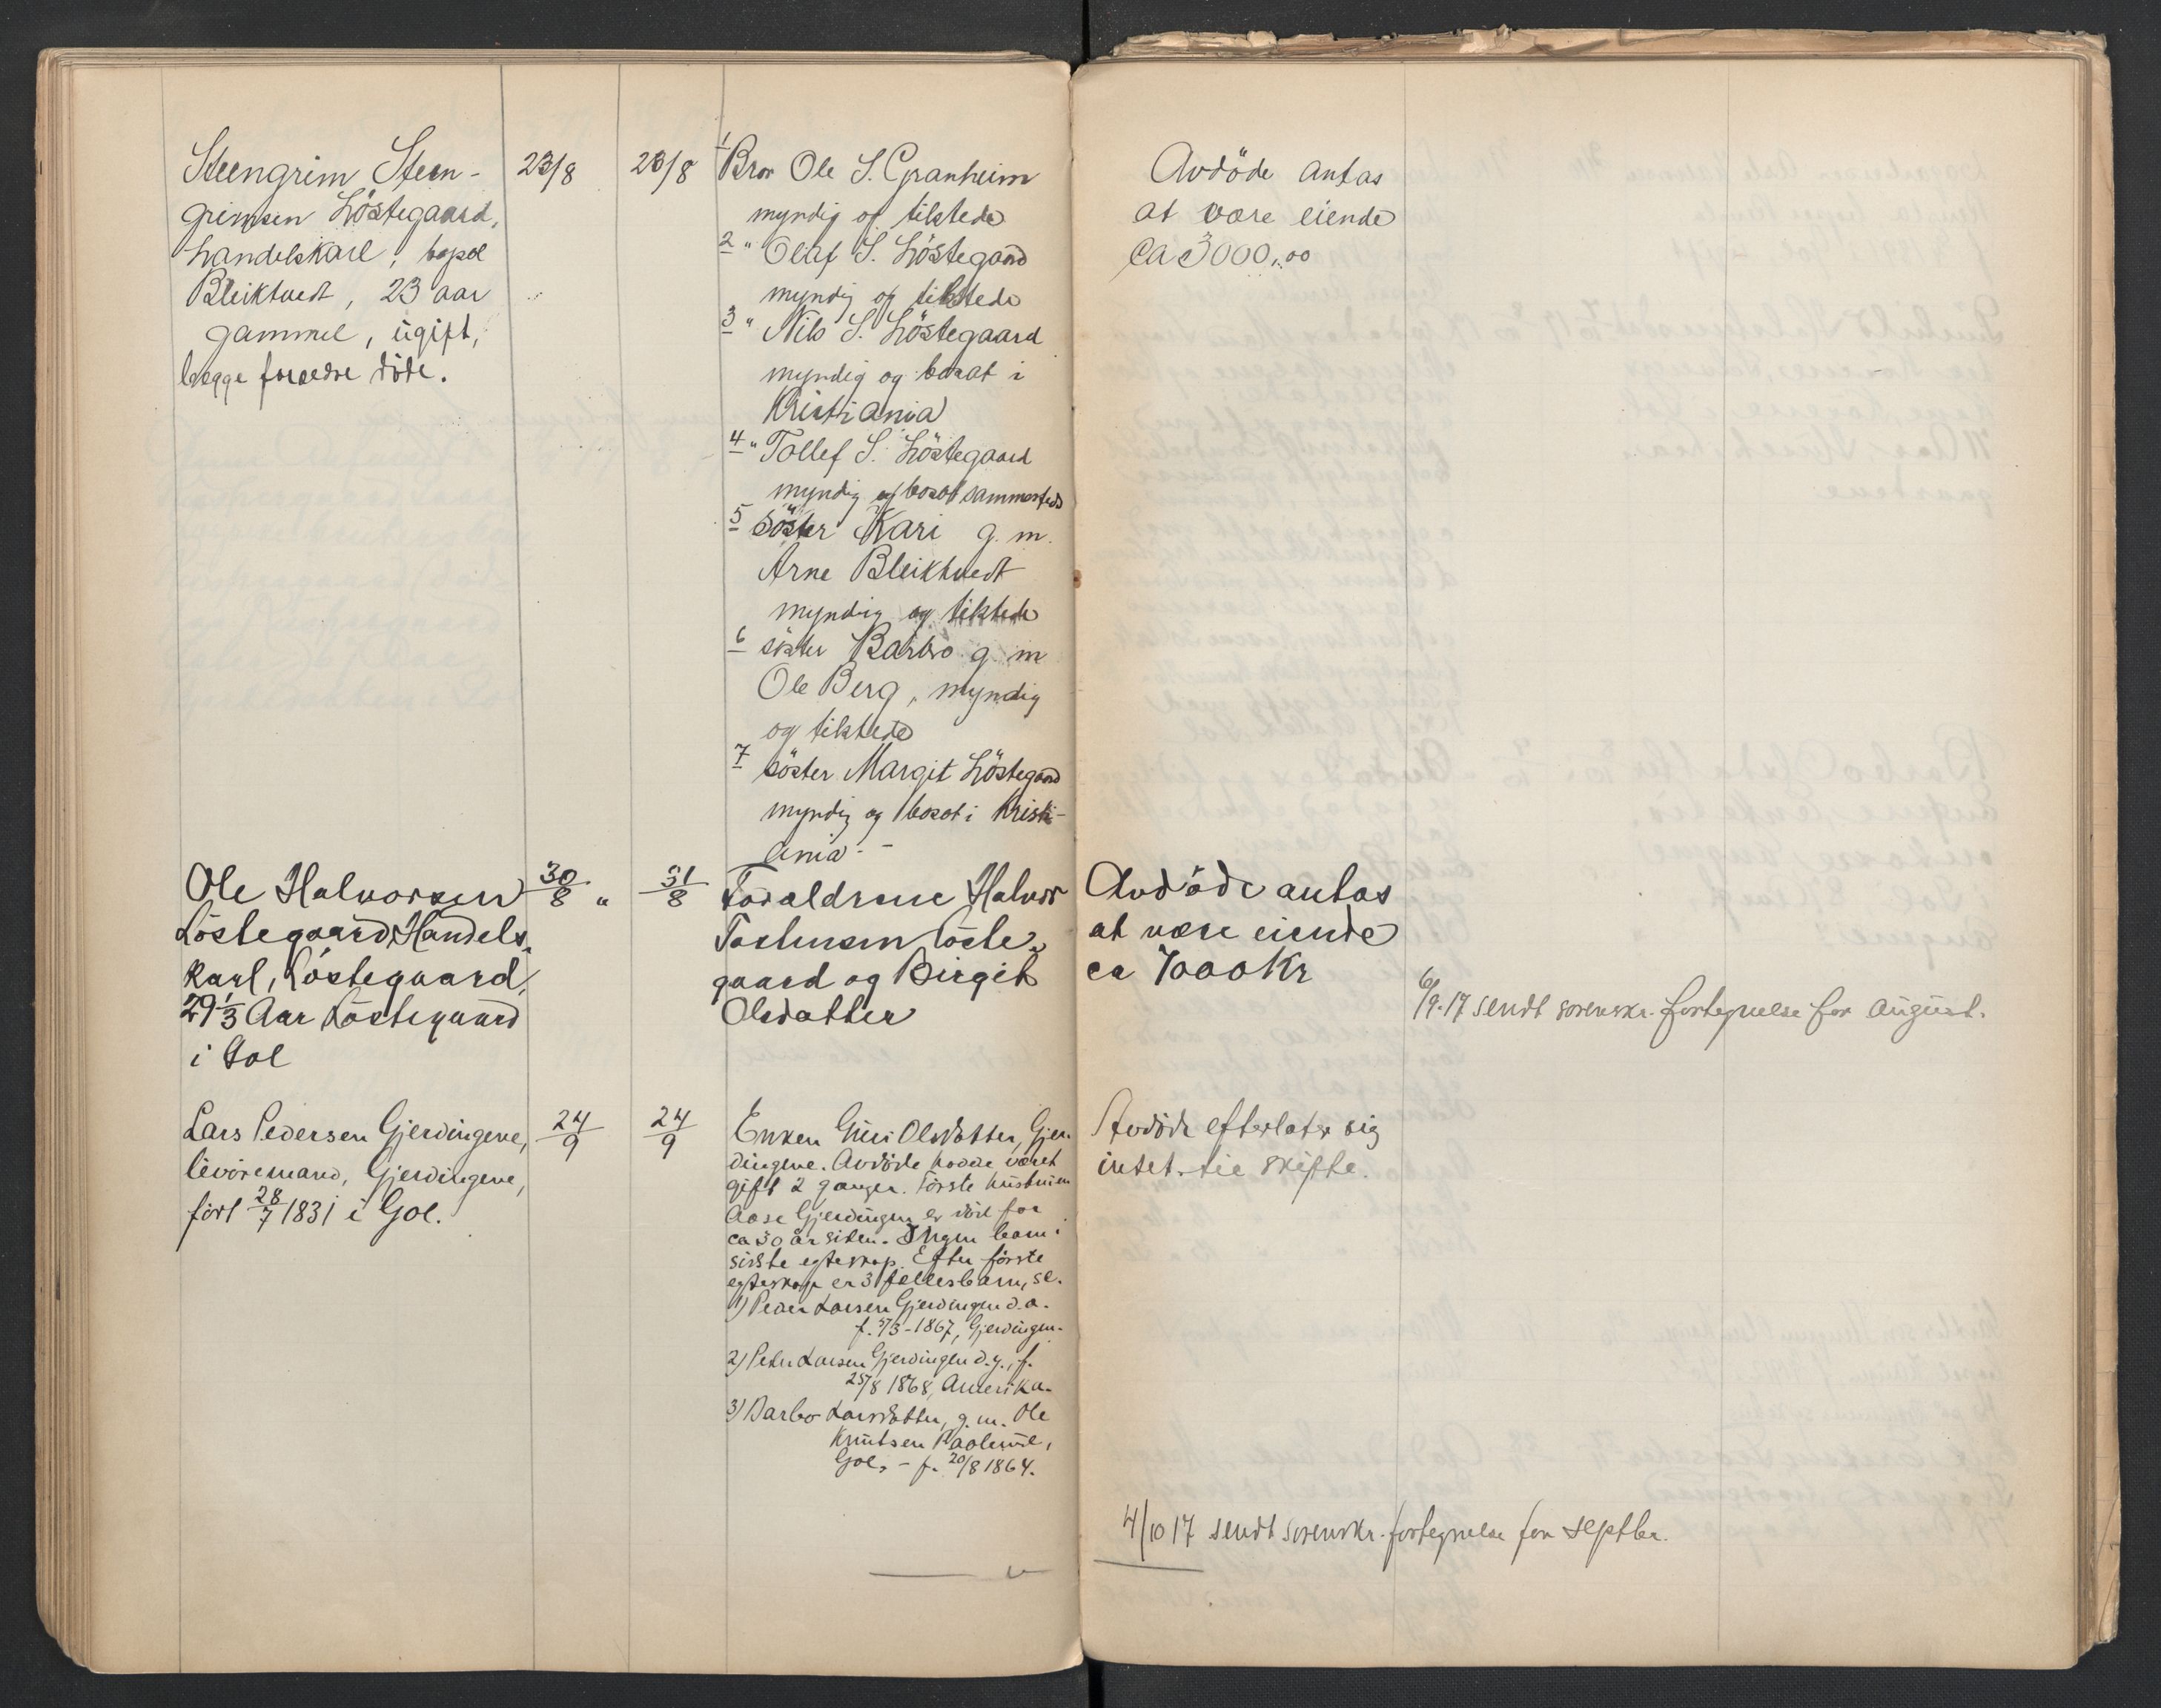 Steengrim Steen-
grimsen Löstegaard,
handelskarl, bopæl
Bleiktvedt, 23 aar
gammel, ugift,
begge foreldre döde.
23/8
23/8
1 Bror Ole S. Granheim
myndig og tilstede
2 " Olaf S. Löstegaard
myndig og tilstede
3 " Nils S. Löstegaard
myndig og bosat i
Kristiania
4 " Tollef S. Löstegaard
myndig og bosat sammesteds
5 Söster Kari g. m.
Arne Bleiktvedt
myndig og tilstede
6 söster Barbro g. m
Ole Berg, myndig
og tilstede
7 söster Margit Löstegaard
myndig og bosat i Kristi-
ania. -
Avdöde antas
at være eiende
ca 3000,00
Ole Halvorsen
Löstegaard, Handels-
karl, Löstegaard,
29 1/3 Aar Löstegaard
i Gol
30/8 "
31/8
Foraldrene Halvor
Löste-
gaard og Birgit
Olsdatter
Avdöde antas
at være eiende
ca 7000 Kr
6/9.17 sendt sorenskr. fortegnelse for august.
Lars Pedersen Gjerdingene,
livöremand, Gjerdingene,
född 28/7 1831 i Gol.
24/9
24/9
Enken Guri Olsdatter, Gjer-
dingene. Avdöde hadde været
gift 2 ganger. Förste hustruen
Aase Gjerdingen er död for
ca 30 år siden. Ingen barn i
sidste egteskap. Efter förste
egteskap er 3 fellesbarn, se.
1) Peder Larsen Gjerdingen d.e.
f. 5/3-1867, Gjerdingen.
2) Peder Larsen Gjerdingen d.y., f.
25/8 1868, Amerika.
3) Barbo Larsdatter, g. m. Ole
Knutsen
Gol, - f. 20/8 1864.
Avdöde efterlater sig
intet til skifte.
4/10 17 sendt sorenskr. fortegnelse for septbr.